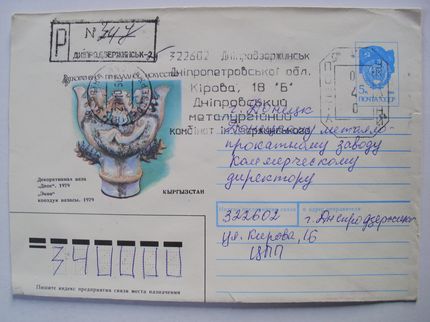 Р
№ 247
ДНІПРОДЗЕРЖИНСЬК-2
322602 Дніпродзержинськ
Дніпропетровської обл.
Кірова, 18 "Б"
Дніпровський
металургійний
комбінат ім. Дзержинського
5к
ПОЧТА СССР
г. Донецк
прокатному заводу
Коммерческому
директору
Декоративная ваза
"Двое". 1979
"Экөө"
көөдүк вазасы. 1979
КЫРГЫЗСТАН
322602 г. Днепродзержинск
ул. Кирова, 16
18ПП
340000
Пишите индекс предприятия связи места назначения